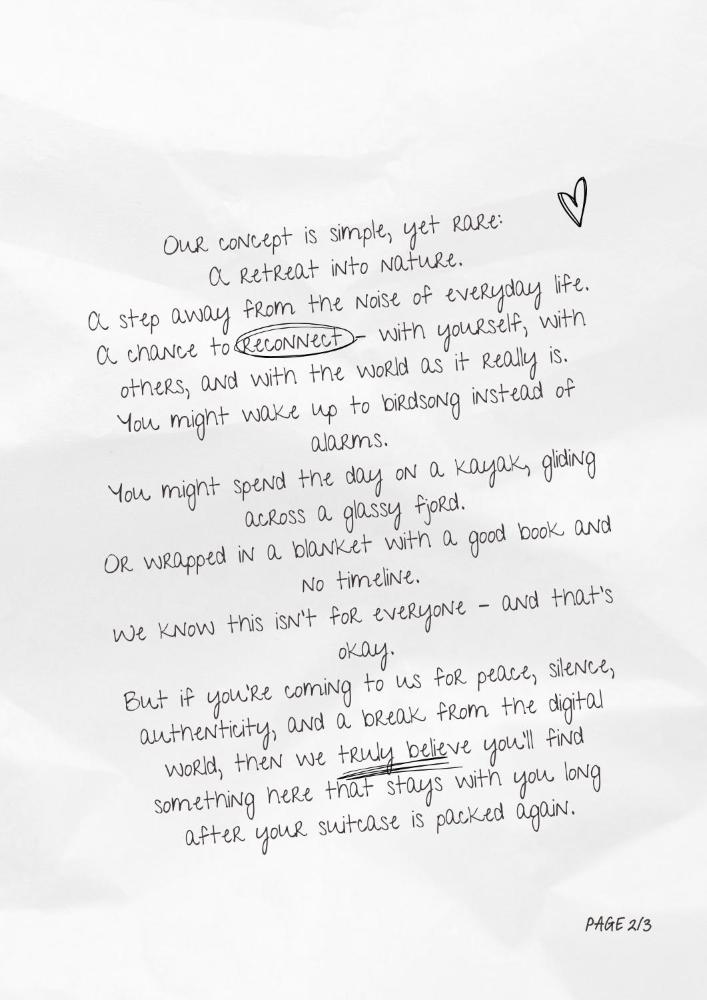 Our concept is simple, yet rare:
A retreat into nature.
A step away from the noise of everyday life.
A chance to reconnect – with yourself, with
others, and with the world as it really is.
You might wake up to birdsong instead of
alarms.
You might spend the day on a kayak, gliding
across a glassy fjord.
Or wrapped in a blanket with a good book and
no timeline.
We know this isn't for everyone – and that's
okay.
But if you're coming to us for peace, silence,
authenticity, and a break from the digital
world, then we truly believe you'll find
something here that stays with you long
after your suitcase is packed again.
PAGE 2/3